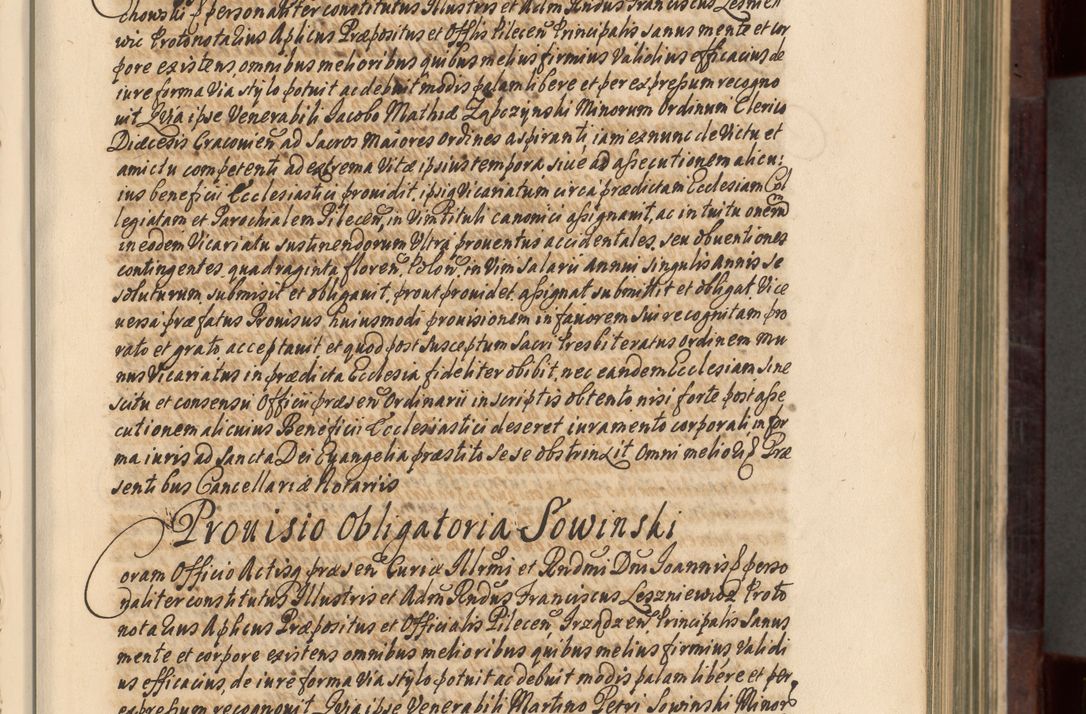 chowski p personaliter constitutus Illustris et Adm Rndus Franciscus Leszniе
wic Protonotarius Aplicus Præpositus et Offlis Pilecen̄ Principalis sanus mente et cor
pore existens, omnibus melioribus quibus melius firmius validius efficacius de
iure forma via stylo potuit ac debuit modis palam libere et per expressum recogno
uit Quia ipse Venerabili Jacobo Mathiæ Ząbczynski Minorum Ordinum Clerico
Diæcesis Cracouien̄ ad Sacros Maiores Ordines aspiranti, iam ex nunc de Victu et
amictu competenti ad extrema Vitæ ipsius tempora, siue ad assecutionem alicu:
ius beneficii Ecclesiastici prouidit, ipsiq Vicariatum circa prædictam Ecclesiam Col
legiatam et Parochialem Pilecen̄, in Vim tituli canonici assignauit, ac intuitu onerū
in eodem Vicariatu sustinendorum Vltra prouentus accidentales, seu obuentiones
contingentes, quadraginta floren̄, Polon̄, in Vim Salarii annui singulis annis se
soluturum submisit et obligauit, prout prouidet assignat submittit et obligat, Vice
uersa præfatus Prouisus, huiusmodi prouisionem in fauorem sui recognitam pro
rato et grato acceptauit et quod post susceptum Sacri Presbiteratus Ordinem mu
nus Vicariatus in prædicta Ecclesia fideliter obibit, nec eandem Ecclesiam sine
scitu et consensu Officii præsen̄ Ordinarii in scriptis obtento, nisi forte post asse
cutionem alicuius Beneficii Ecclesiastici deseret iuramento corporali in for
ma iuris ad Sancta Dei Euangelia præstito sese obstrinxit Omni meliori Præ
sentibus Cancellariæ Notariis
Prouisio Obligatoria Sowinski
Coram Officio Actisq præsen̄ Curiæ Illrmi et Rndmi Dni Ioannis p perso
naliter constitutus Illustris et Adm Rndus Franciscus Leszniewicz Proto
notarius Aplicus Præpositus et Officialis Pilecen̄, Irządzen̄, Principalis Sanus
mente et corpore existens omnibus melioribus, quibus melius firmius Validi
us efficacius, de iure forma Via stylo potuit ac debuit modis palam libere et per
expressum recognouit Quia ipse Venerabili Martino Petri Sowinski Minor